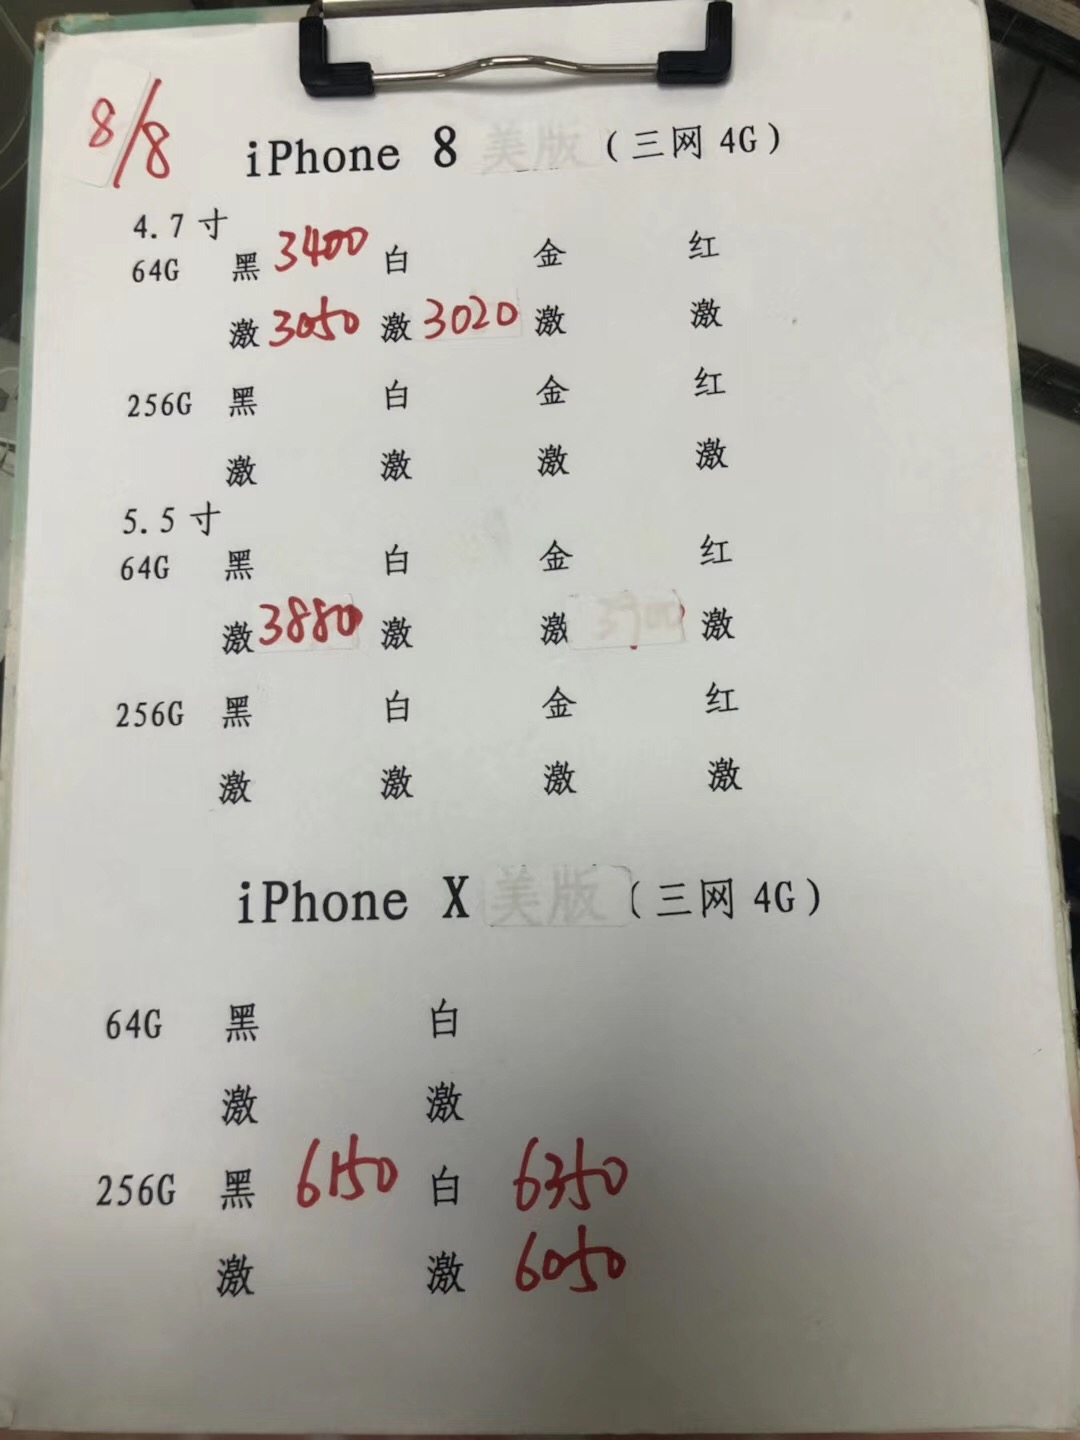 8/8
iPhone 8 美版 (三网 4G)
4.7 寸
64G 黑 3400 白 金 红
激 3050 激 3020 激 激
256G 黑 白 金 红
激 激 激 激
5.5 寸
64G 黑 白 金 红
激 3880 激 激 3900 激
256G 黑 白 金 红
激 激 激 激
iPhone X 美版 (三网 4G)
64G 黑 白
激 激
256G 黑 6150 白 6350
激 激 6050